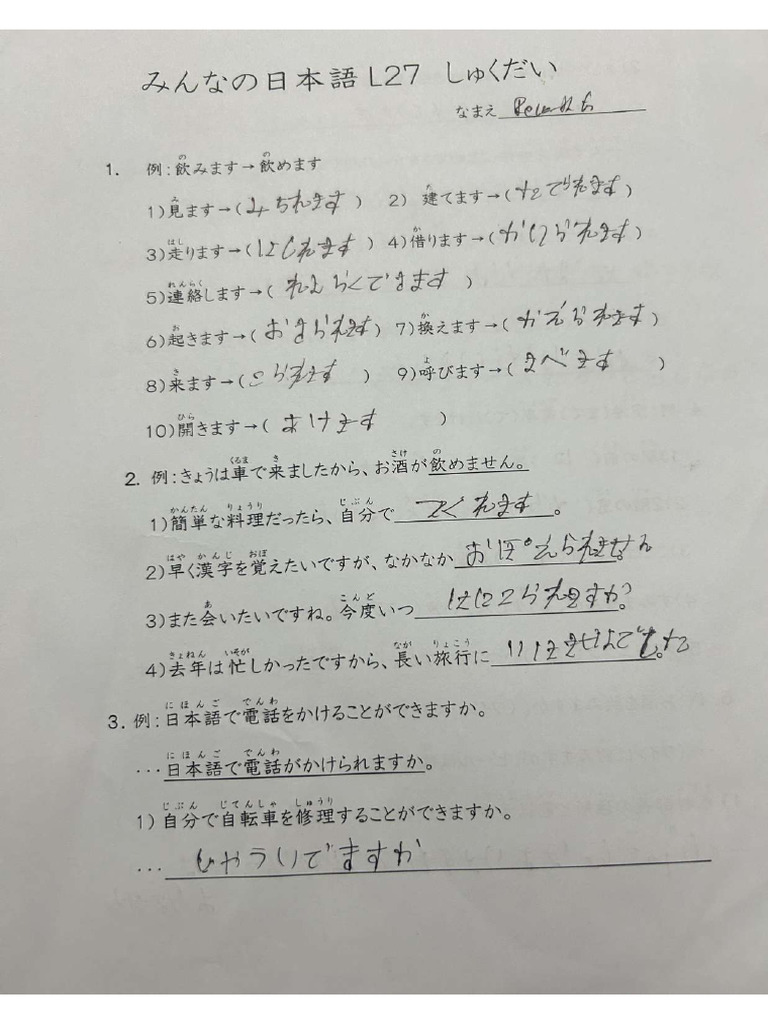 みんなの日本語 L27 しゅくだい
なまえ
1. 例:飲みます→飲めます
1)見ます→(みられます) 2) 建てます→(たてられます)
3)走ります→(はしれます) 4)借ります→(かりられます)
5)連絡します→(れんらくできます)
6)起きます→(おきられます) 7)換えます→(かえられます)
8)来ます→(こられます) 9)呼びます→(よべます)
10)開きます→(あけます)
2. 例:きょうは車で来ましたから、お酒が飲めません。
1)簡単な料理だったら、自分でつくれます。
2)早く漢字を覚えたいですが、なかなかおぼえられません
3)また会いたいですね。今度いつ
4)去年は忙しかったですから、長い旅行に
3. 例:日本語で電話をかけることができますか。
…日本語で電話がかけられますか。
1)自分で自転車を修理することができますか。
…